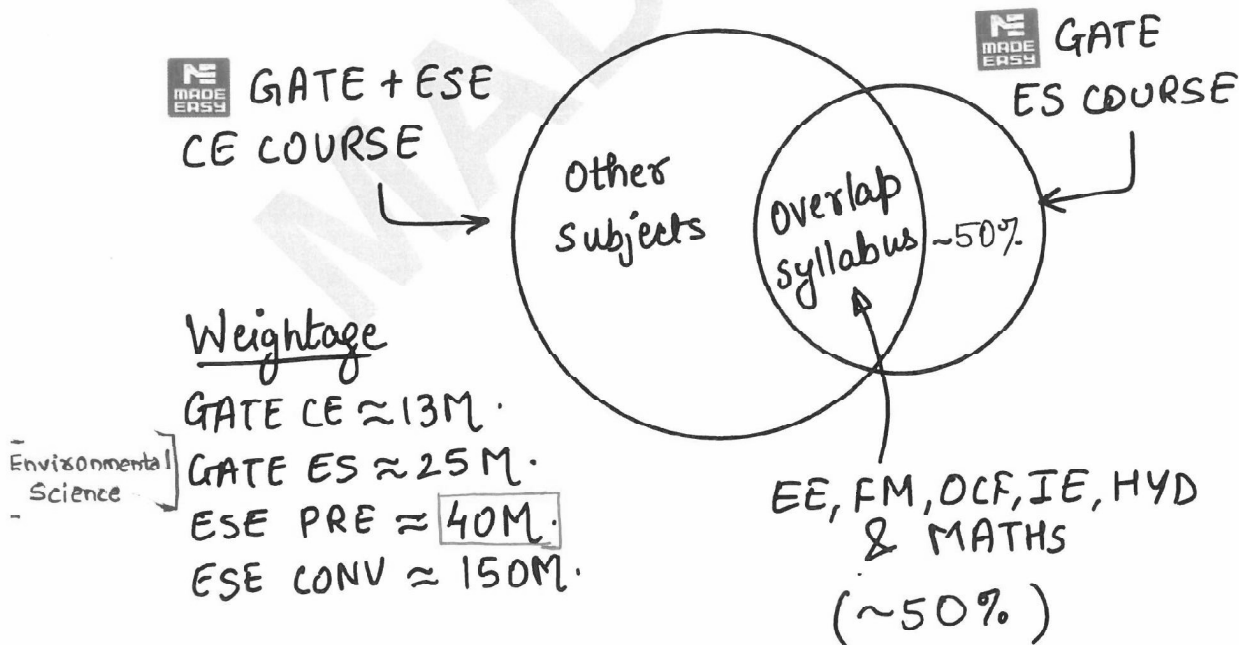 MADE
EASY
GATE + ESE
CE COURSE
MADE
EASY
GATE
ES COURSE
Other
subjects
Overlap
syllabus
~50%
Weightage
GATE CE ≈ 13M.
Environmental
Science
GATE ES ≈ 25M.
ESE PRE ≈ 40M.
ESE CONV ≈ 150M.
EE, FM, OCF, IE, HYD
& MATHS
(~50%)
MAD